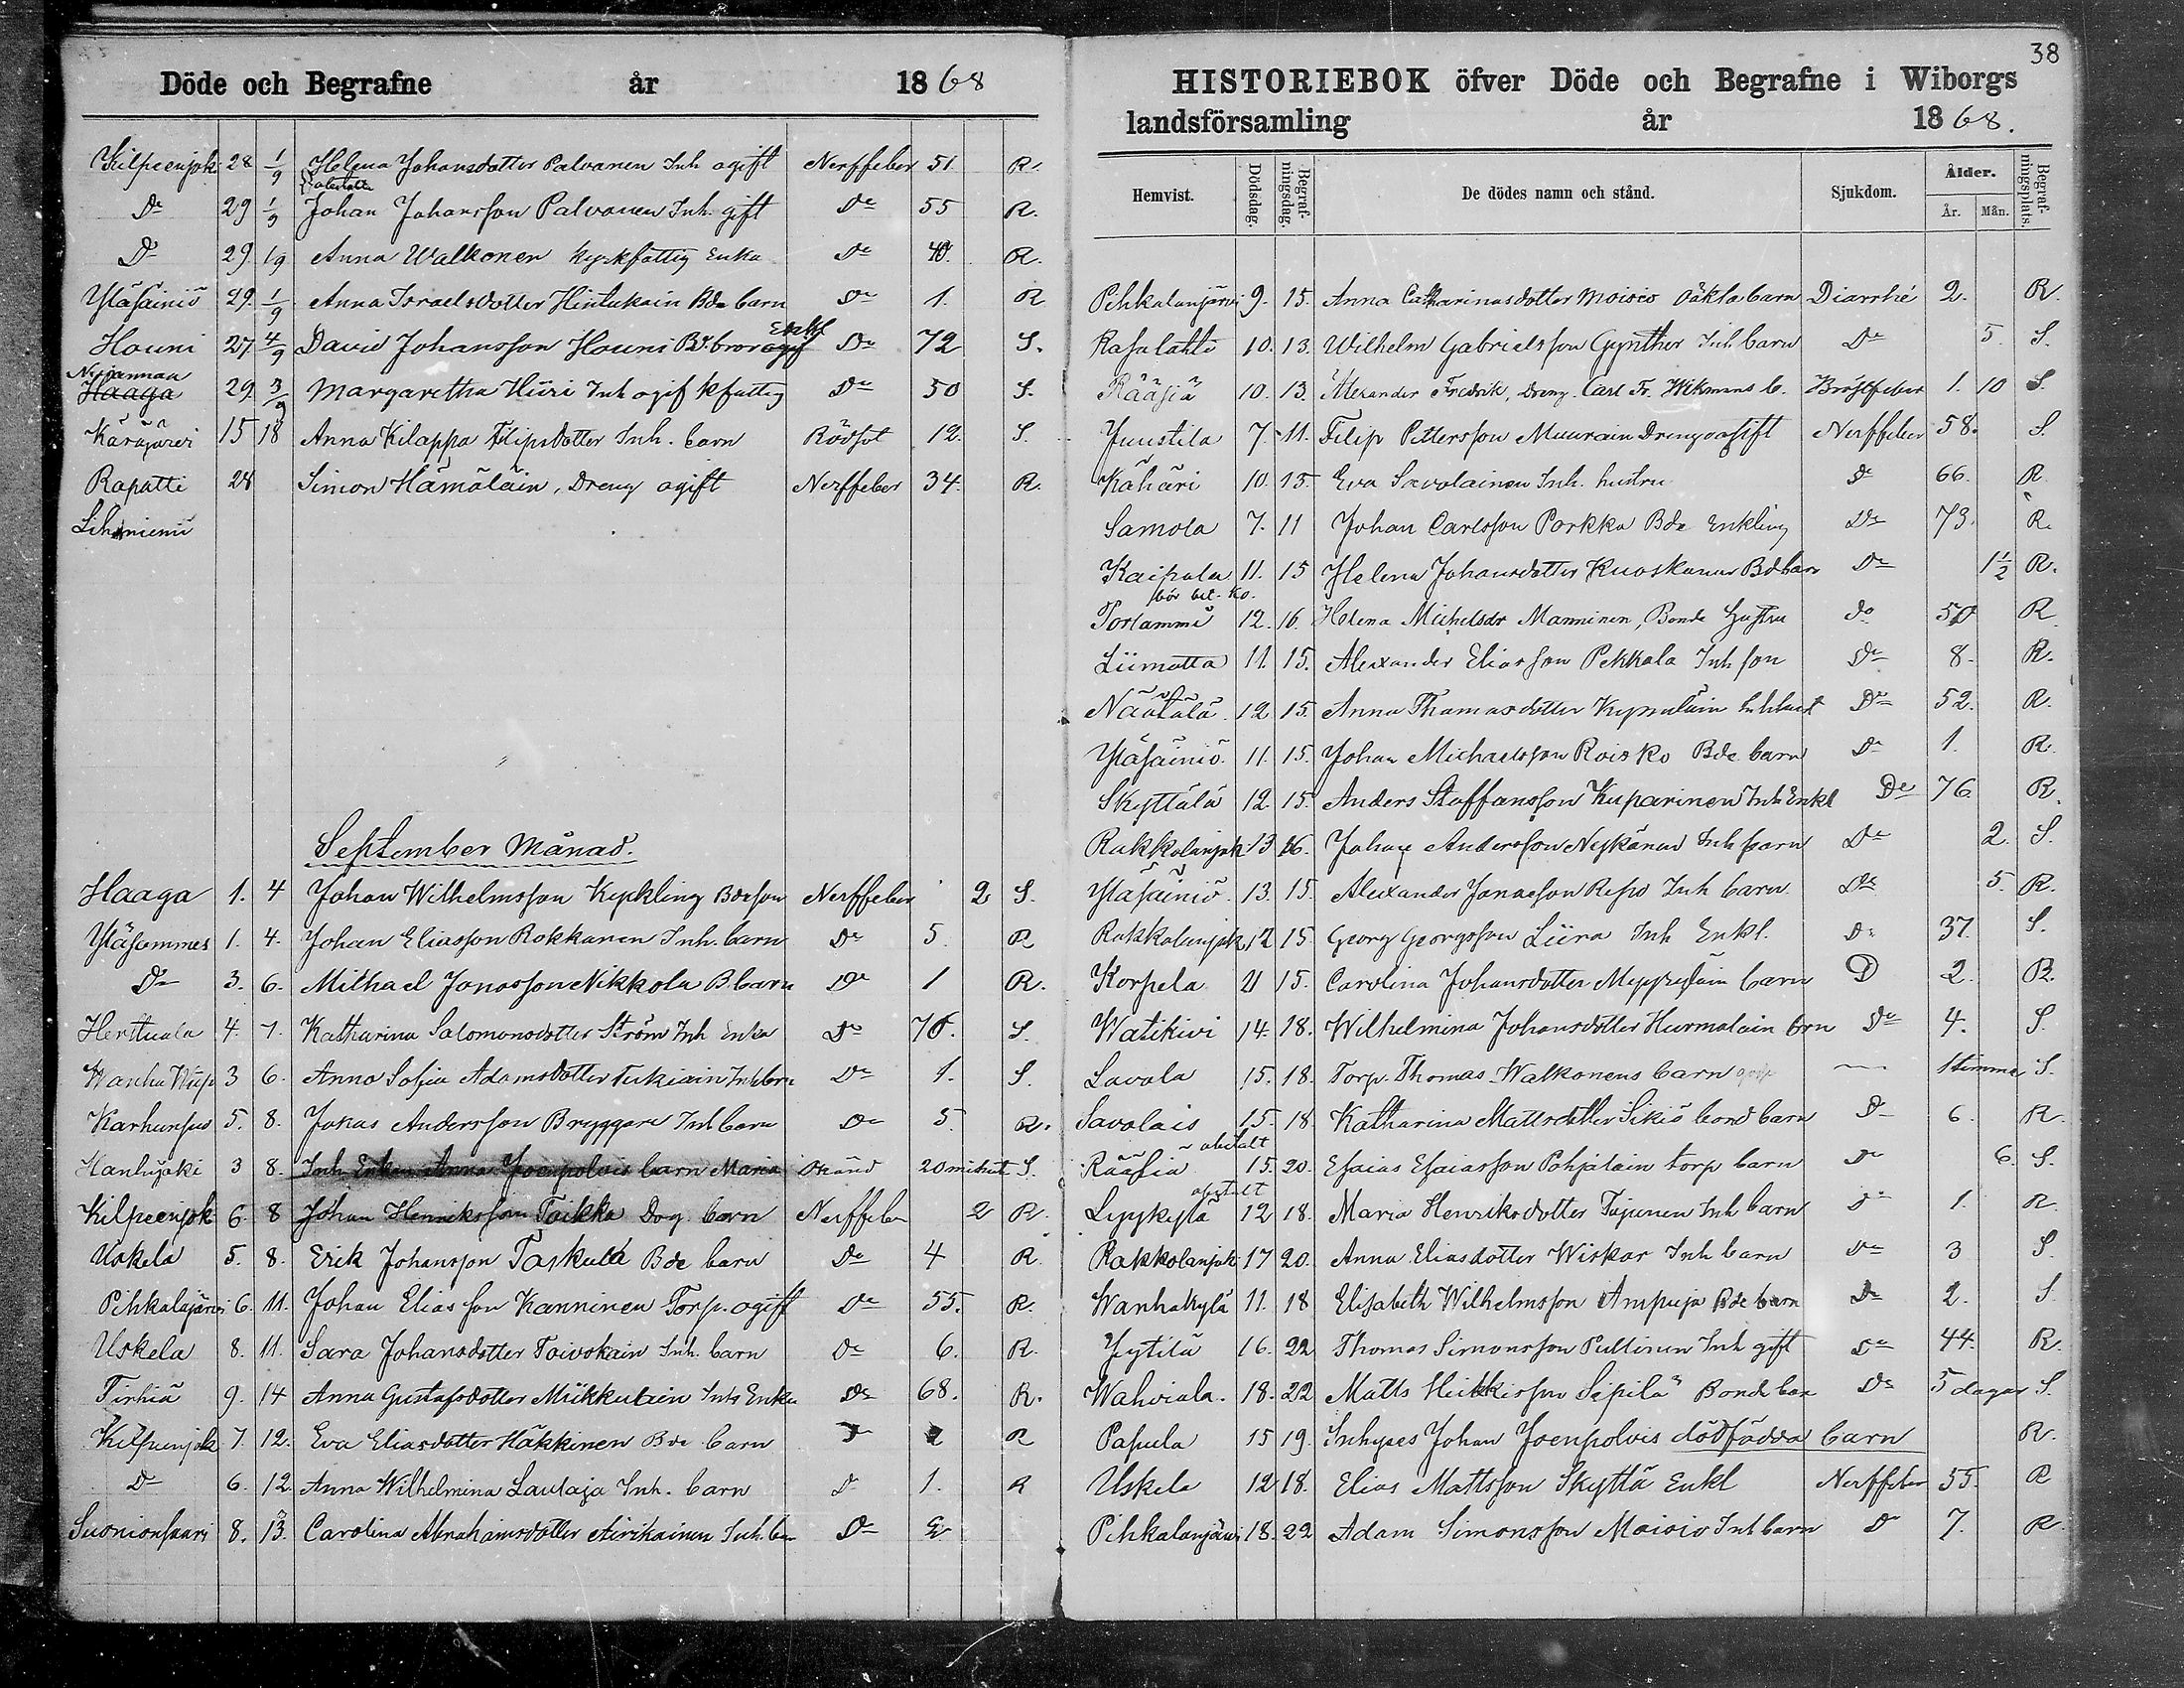 Döde och Begrafne år 1868
Kilpeenjok 28 1/9 Helena Johansdotter Palvanen Inh ogift Nerffeber 51. R.
Do 29 1/9 Johan Johansson Palvanen Inh. gift Do 55 R.
Do 29. 1/9 Anna Walkonen kyrkfattig Enka Do 40. R.
Yläsäiniö 29. 1/9 Anna Israelsdotter Hintukain Bde barn Do 1. R
Houni 27. 4/9 David Johansson Houni Bd. bror Enkl Do 72 S.
Nojanmaa
Haaga 29. 3/9 Margaretha Hiiri Inh ogif kfattig Do 50 S.
Kärajärvi 15 18 Anna Kilappa Filipsdotter Inh. barn Rödsot 12. S.
Rapatti 28 Simon Hämäläin, Dreng ogift Nerffeber 34. R.
Lihaniemi
September Månad.
Haaga 1. 4 Johan Wilhelmsson Kyckling Bdeson Nerffeber 2 S.
Yläsommes 1. 4. Johan Eliasson Rokkanen Inh. barn Do 5. R
Do 3. 6. Mithael Jonasson Nikkola B. barn Do 1 R.
Herttuala 4. 7. Katharina Salomonsdotter Ström Inh Enka Do 70. S.
3 6. Anna Sofia Adamsdotter Turkiain Inh brn Do 1. S.
Karhunsuo 5. 8. Jonas Andersson Bryggare Inh barn Do 5. R.
Hanhijoki 3 8. Inh. Enkan Anna Joenpolvis barn Maria Okänd 20 minut S.
Kilpeenjok 6. 8 Johan Henriksson Toikka Dog. barn Nerffeber 2 R.
Uskela 5. 8. Erik Johansson Taskula Bde barn Do 4 R.
Pihkalajärvi 6. 11. Johan Eliasson Kanninen Torp. ogift Do 55. R.
Uskela 8. 11. Sara Johansdotter Toivokain Inh. barn Do 6. R.
Tirhiä 9. 14 Anna Gustafsdotter Miikkulain Inh Enka Do 68. R.
Kilpeenjok 7. 12. Eva Eliasdotter Häkkinen Bde barn D 2 R
Do 6. 12. Anna Wilhelmina Lautaja Inh. barn Do 1. R
Suonionsaari 8. 13. Carolina Abrahamsdotter Airikainen Inh. bn Do 2.
38
HISTORIEBOK öfver Döde och Begrafne i Wiborgs
landsförsamling år 1868.
Hemvist. Dödsdag. Begrafningsdag. De dödes namn och stånd. Sjukdom. Ålder. År. Mån. Begrafningsplats.
Pihkalanjärvi 9. 15. Anna Catharinasdotter Moisio Oäkta barn Diarrhé 2. R.
Rasalahti 10. 13. Wilhelm Gabrielsson Gynther Inh barn Do 5. S.
Rääsiä 10. 13. Alexander Fredrik, Dreng. Carl Fr. Wikmans b. Bröstfeber 1. 10 S.
Juustila 7. 11. Filip Pettersson Muurain Dreng ogift Nerffeber 58. S.
Kähäri 10. 15. Eva Savolainen Inh. hustru Do 66. R.
Samola 7. 11 Johan Carlsson Porkka Bde Enkling Do 73. R.
Kaipola 11. 15 Helena Johansdotter Kuoskanen Bd barn Do 1 1/2 R.
bör bet. ko.
Porlammi 12. 16. Helena Michelsdr Manninen, Bonde hustru do 50 R
Liimatta 11. 15. Alexander Eliasson Pekkala Inh son Do 8. R.
Näätälä 12 15. Anna Thomasdotter Inh hust Do 52. R.
Yläsäiniö. 11. 15. Johan Michaelsson Roisko Bde barn Do 1. R.
Skyttälä 12. 15. Anders Staffansson Kuparinen Inh Enkl Do 76. R.
Rakkolanjok 13 16. Johan Andersson Neskänen Inh barn Do 2. S.
Yläsäiniö. 13. 15. Alexander Jonasson Repo Inh barn Do 5. R.
Rakkolanjok 12 15 Georg Georgsson Liira Inh Enkl. Do 37. S.
Korpela 11 15. Carolina Johansdotter barn D 2. R.
Watikivi 14. 18. Wilhelmina Johansdotter Hurmalain brn Do 4. S.
Lavola 15. 18. Torp. Thomas Walkonens barn 1 timme S.
Savolais 15. 18 Katharina Mattsdotter Sikiö bond barn Do 6. R.
obetalt
Rääsiä 15. 20. Esaias Esaiasson Pohjalain torp barn Do 6. S.
obetalt
Lyykylä 12 18. Maria Henriksdotter Tujunen Inh barn Do 1. R.
Rakkolanjok 17 20. Anna Eliasdotter Wiskar Inh barn Do 3 S.
Wanhakylä 11. 18 Elisabeth Wilhelmsson Ampuja Bde barn Do 2. S
Jytilä 16. 22 Thomas Simonsson Pullinen Inh gift Do 44. R.
Wahviala. 18. 22 Matts Heikkisson Sipilä Bonde bar Do 5 dagar S.
Papula 15 19. Inhyses Johan Joenpolvis dödfödda barn R.
Uskela 12 18. Elias Mattsson Skyttä Enkl Nerffeber 55. R
Pihkalanjärvi 18. 22 Adam Simonsson Moisio Inh barn Do 7. R